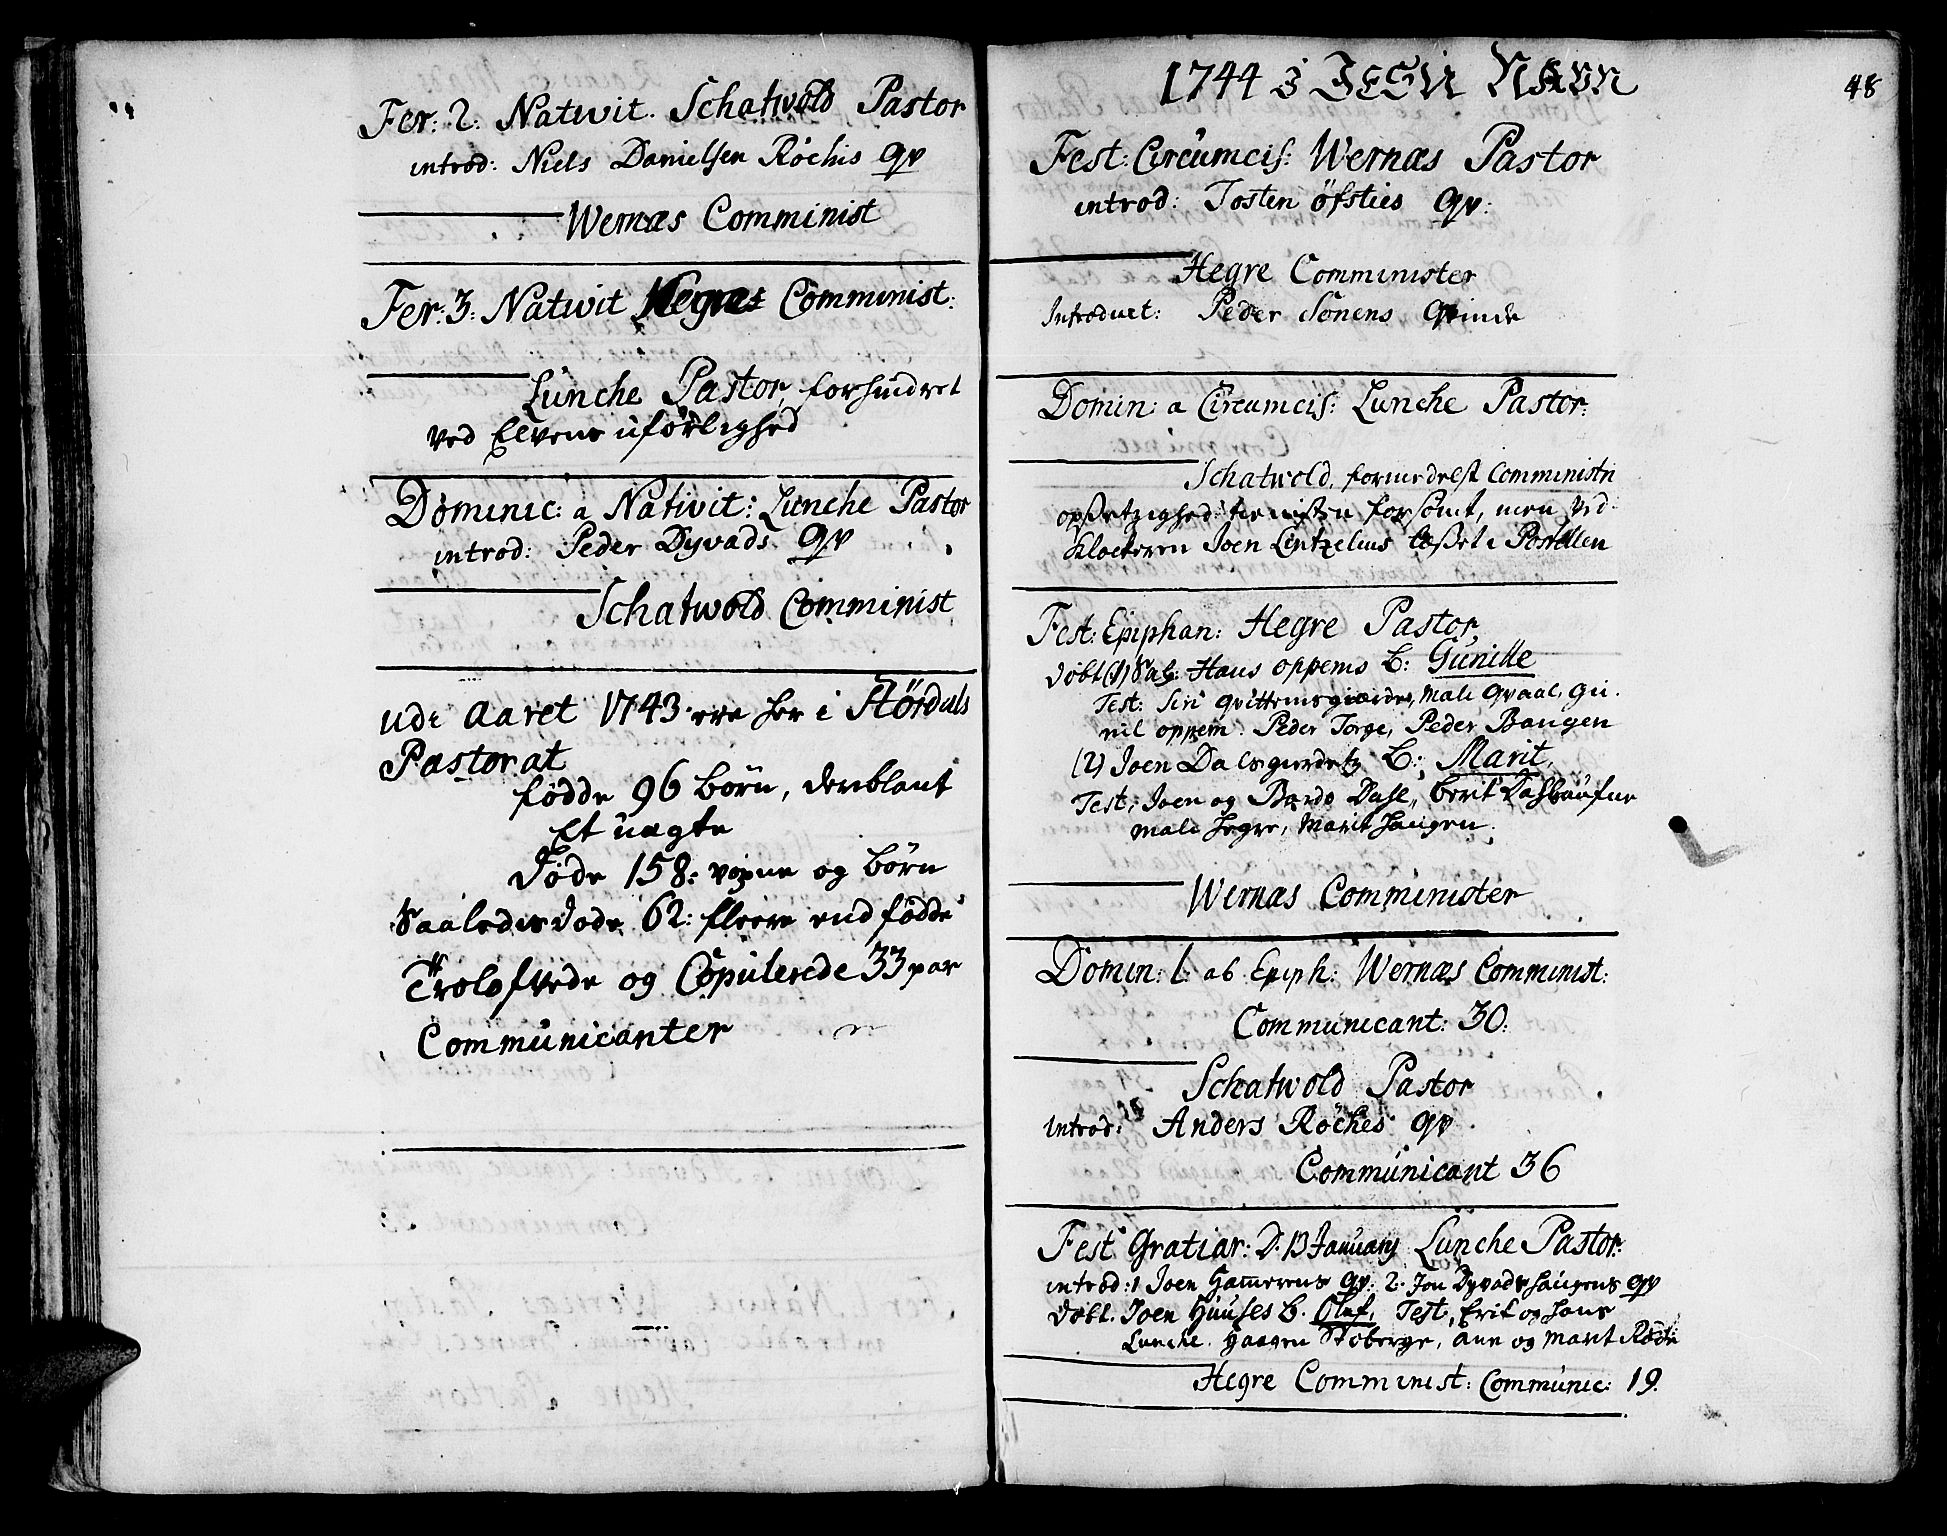 Fer: 2. Natwit. Schatwold Pastor
introd: Niels Danielsen Röchis qv
Wernæs Comminist
Fer: 3: Natwit Hegræs Comminist:
Lunche Pastor, forhindret
ved Elvens uförlighed
Dominic: a Nativit: Lunche Pastor
introd: Peder Dyvads qv
Schatwold Comminist
udi Aaret 1743 ere her i Störduls
Pastorat
födde 96 börn, deriblant
Et uægte
Döde 158: voxne og börn
Saaledes döde 62: fleere end födde
Trolofvede og Copulerede 33 par
Communicanter
1744 I JESU NAVN
48
Fest: Circumcis: Wernæs Pastor
introd: Tosten öfsties qv:
Hegre Comminister
Introduct: Peder Sonens Qvinde
Domin: a Circumcis: Lunche Pastor:
Schatwold, formedelst Comministri
opsetzighed tienisten forsömt, men ved
Klockeren Joen Lintzelius læsset i Postillen
Fest: Epiphan: Hegre Pastor
döbt (1) Sal: Hans oppems b: Gunille
Test: Siri qvittemsgierdes, Mali Qvaal, Gu
nil oppem. Peder Torge, Peder Baugen
(2) Joen Dalsgierdetz b: Marit.
Test: Joen og Bardo Dahl, berit Dahlhaufne
Mali Hegre, Marit Haugen.
Wernæs Comminister
Domin: 1. ab Epiph: Wernæs Comminist:
Communicant: 30.
Schatwold Pastor
introd: Anders Röches qv.
Communicant 36
Fest Gratiar: D. 13 January Lunche Pastor:
introd: 1 Joen Hamerens qv. 2. Jon Dyvadshaugens qv
döbt. Joen Huuses b. Oluf, Test, Erik og Hans
Lunche. Haagen Stoberge, Ann og Marit Röde
Hegre Comminist: Communic: 19.